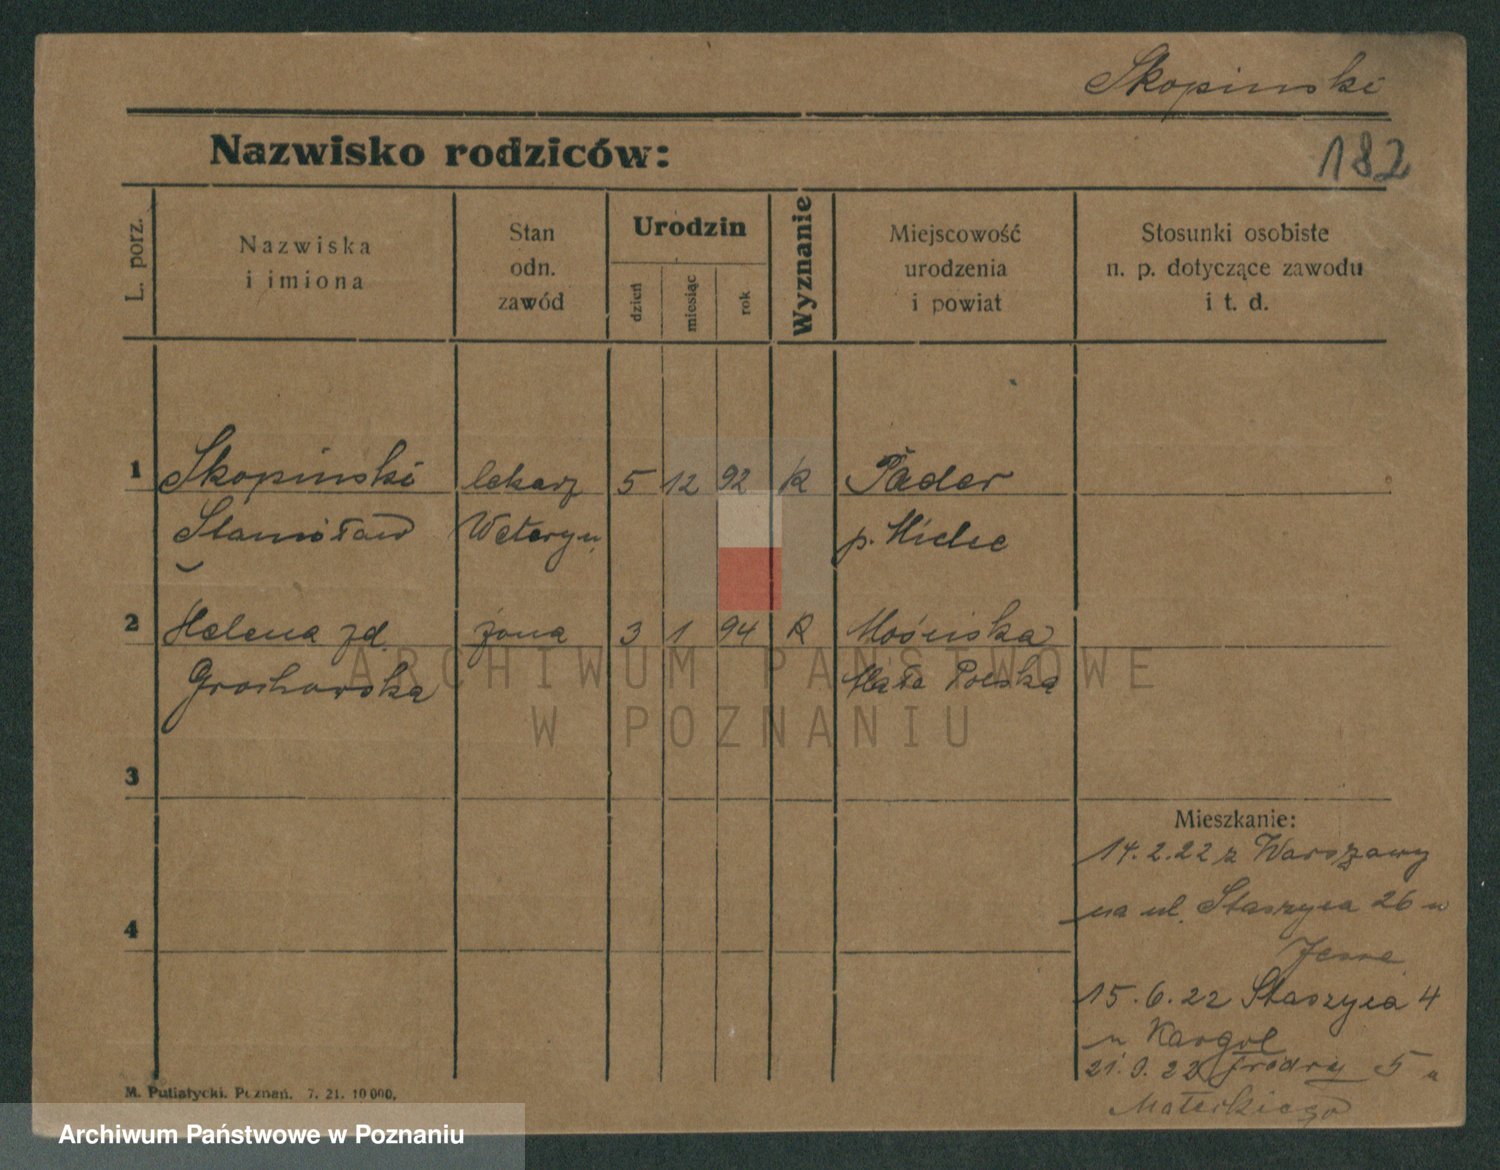 Skopinski
Nazwisko rodziców:
182
L. porz.
Nazwiska
i imiona
Stan
odn.
zawód
Urodzin
dzień
miesiąc
rok
Wyznanie
Miejscowość
urodzenia
i powiat
Stosunki osobiste
n. p. dotyczące zawodu
i t. d.
1 Skopinski lekarz 5 12 92 K
Stanisław Weteryn. p. Mielec
2 Helena zd. żona 3 1 94 K Mościska
Grochowska Mało Polska
ARCHIWUM PAŃSTWOWE
W POZNANIU
3
4
Mieszkanie:
14.2.22 z Warszawy
na ul. Staszyca 26 u
15.6.22 Staszyca 4
u Kargol
21.9.22 Fredry 5 u
Materkiego
M. Putiatycki. Poznań. 7. 21. 10 000.
Archiwum Państwowe w Poznaniu